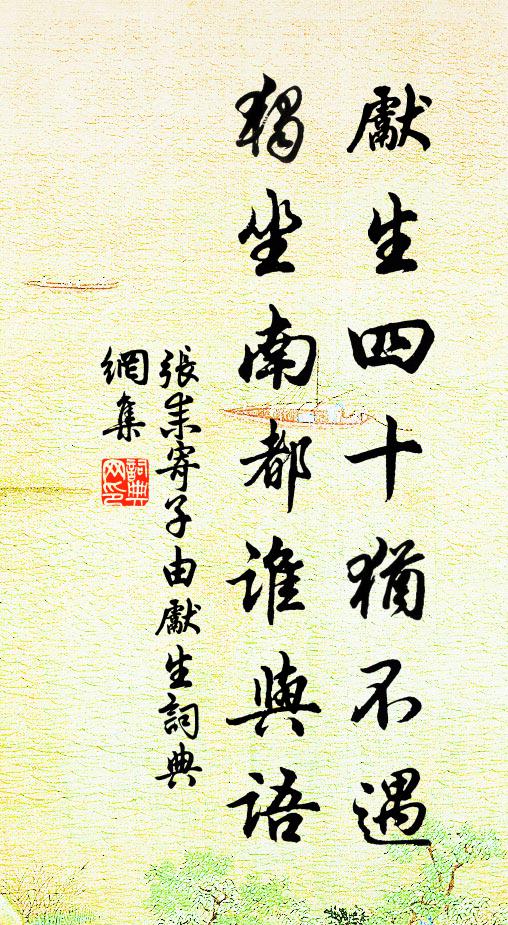 獻生四十猶不遇
獨坐南都誰與語
張耒寄子由獻生詞典
網集
詞典
网印